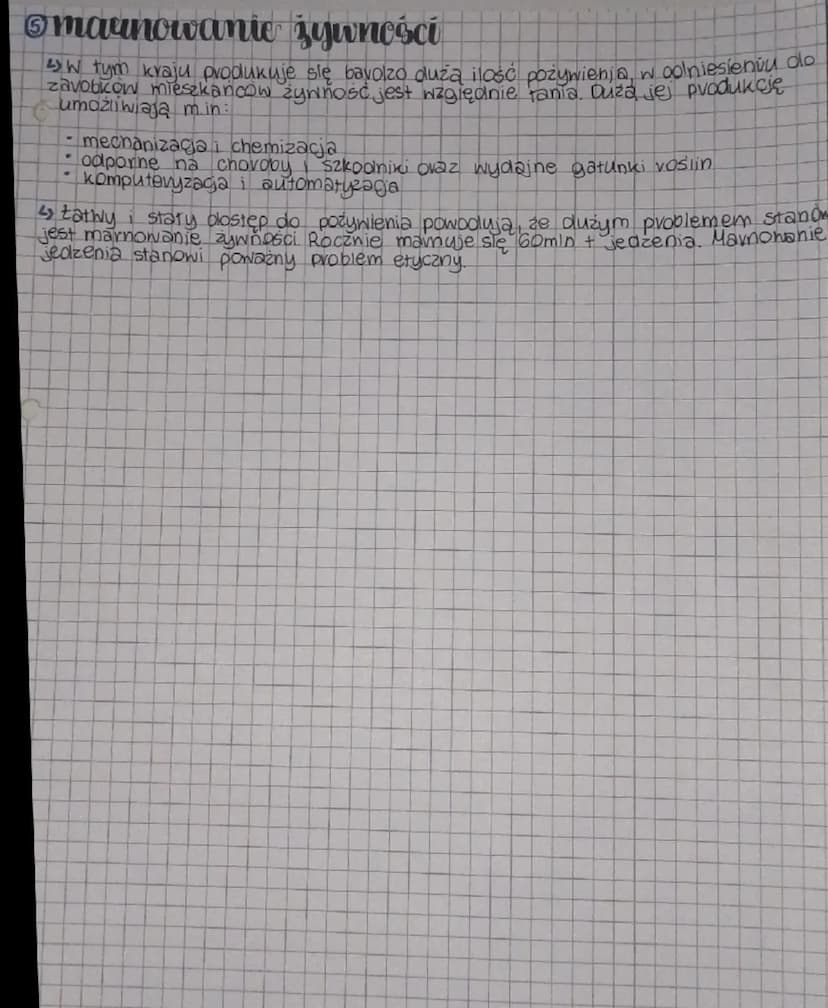 ⑤ marnowanie żywności
↳ W tym kraju produkuje się bardzo dużą ilość pożywienia, w odniesieniu do
zarobków mieszkańców żywność jest względnie tania. Dużą jej produkcję
umożliwiają m.in:
• mechanizacja i chemizacja
• odporne na choroby i szkodniki oraz wydajne gatunki roślin
• komputeryzacja i automatyzacja
↳ Łatwy i stały dostęp do pożywienia powodują, że dużym problemem stanów
jest marnowanie żywności. Rocznie marnuje się 60mln t jedzenia. Marnowanie
jedzenia stanowi poważny problem etyczny.